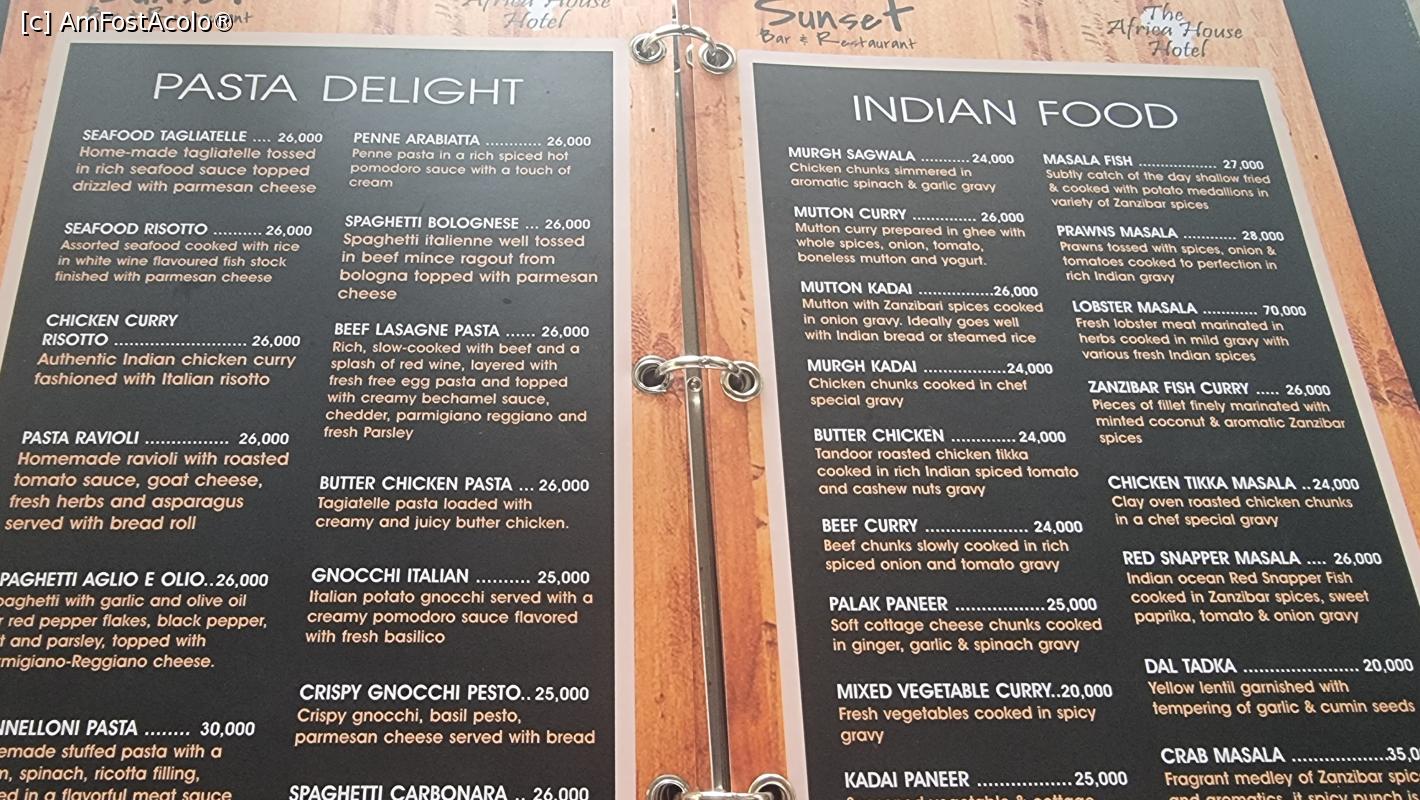 [c] AmFostAcolo®
Hotel
PASTA DELIGHT
SEAFOOD TAGLIATELLE .... 26,000
Home-made tagliatelle tossed
in rich seafood sauce topped
drizzled with parmesan cheese
SEAFOOD RISOTTO .......... 26,000
Assorted seafood cooked with rice
in white wine flavoured fish stock
finished with parmesan cheese
CHICKEN CURRY
RISOTTO ....................... 26,000
Authentic Indian chicken curry
fashioned with Italian risotto
PASTA RAVIOLI ................ 26,000
Homemade ravioli with roasted
tomato sauce, goat cheese,
fresh herbs and asparagus
served with bread roll
PAGHETTI AGLIO E OLIO..26,000
paghetti with garlic and olive oil
red pepper flakes, black pepper,
and parsley, topped with
rmigiano-Reggiano cheese.
NNELLONI PASTA ........ 30,000
emade stuffed pasta with a
spinach, ricotta filling,
ed in a flavorful meat sauce
PENNE ARABIATTA ........... 26,000
Penne pasta in a rich spiced hot
pomodoro sauce with a touch of
cream
SPAGHETTI BOLOGNESE ... 26,000
Spaghetti italienne well tossed
in beef mince ragout from
bologna topped with parmesan
cheese
BEEF LASAGNE PASTA ...... 26,000
Rich, slow-cooked with beef and a
splash of red wine, layered with
fresh free egg pasta and topped
with creamy bechamel sauce,
chedder, parmigiano reggiano and
fresh Parsley
BUTTER CHICKEN PASTA ... 26,000
Tagiatelle pasta loaded with
creamy and juicy butter chicken.
GNOCCHI ITALIAN .......... 25,000
Italian potato gnocchi served with a
creamy pomodoro sauce flavored
with fresh basilico
CRISPY GNOCCHI PESTO.. 25,000
Crispy gnocchi, basil pesto,
parmesan cheese served with bread
SPAGHETTI CARBONARA .. 26,000
Sunset
Bar & Restaurant
The
Africa House
Hotel
INDIAN FOOD
MURGH SAGWALA .......... 24,000
Chicken chunks simmered in
aromatic spinach & garlic gravy
MUTTON CURRY ............. 26,000
Mutton curry prepared in ghee with
whole spices, onion, tomato,
boneless mutton and yogurt.
MUTTON KADAI ...............26,000
Mutton with Zanzibari spices cooked
in onion gravy. Ideally goes well
with Indian bread or steamed rice
MURGH KADAI .................24,000
Chicken chunks cooked in chef
special gravy
BUTTER CHICKEN ............. 24,000
Tandoor roasted chicken tikka
cooked in rich Indian spiced tomato
and cashew nuts gravy
BEEF CURRY .................... 24,000
Beef chunks slowly cooked in rich
spiced onion and tomato gravy
PALAK PANEER .................25,000
Soft cottage cheese chunks cooked
in ginger, garlic & spinach gravy
MIXED VEGETABLE CURRY..20,000
Fresh vegetables cooked in spicy
gravy
KADAI PANEER .................25,000
MASALA FISH .................. 27,000
Subtly catch of the day shallow fried
& cooked with potato medallions in
variety of Zanzibar spices
PRAWNS MASALA ............. 28,000
Prawns tossed with spices, onion &
tomatoes cooked to perfection in
rich Indian gravy
LOBSTER MASALA ............ 70,000
Fresh lobster meat marinated in
herbs cooked in mild gravy with
various fresh Indian spices
ZANZIBAR FISH CURRY ..... 26,000
Pieces of fillet finely marinated with
minted coconut & aromatic Zanzibar
spices
CHICKEN TIKKA MASALA ..24,000
Clay oven roasted chicken chunks
in a chef special gravy
RED SNAPPER MASALA .... 26,000
Indian ocean Red Snapper Fish
cooked in Zanzibar spices, sweet
paprika, tomato & onion gravy
DAL TADKA ..................... 20,000
Yellow lentil garnished with
tempering of garlic & cumin seeds
CRAB MASALA ...................35,0
Fragrant medley of Zanzibar spic
and aromatics, it spicy punch is